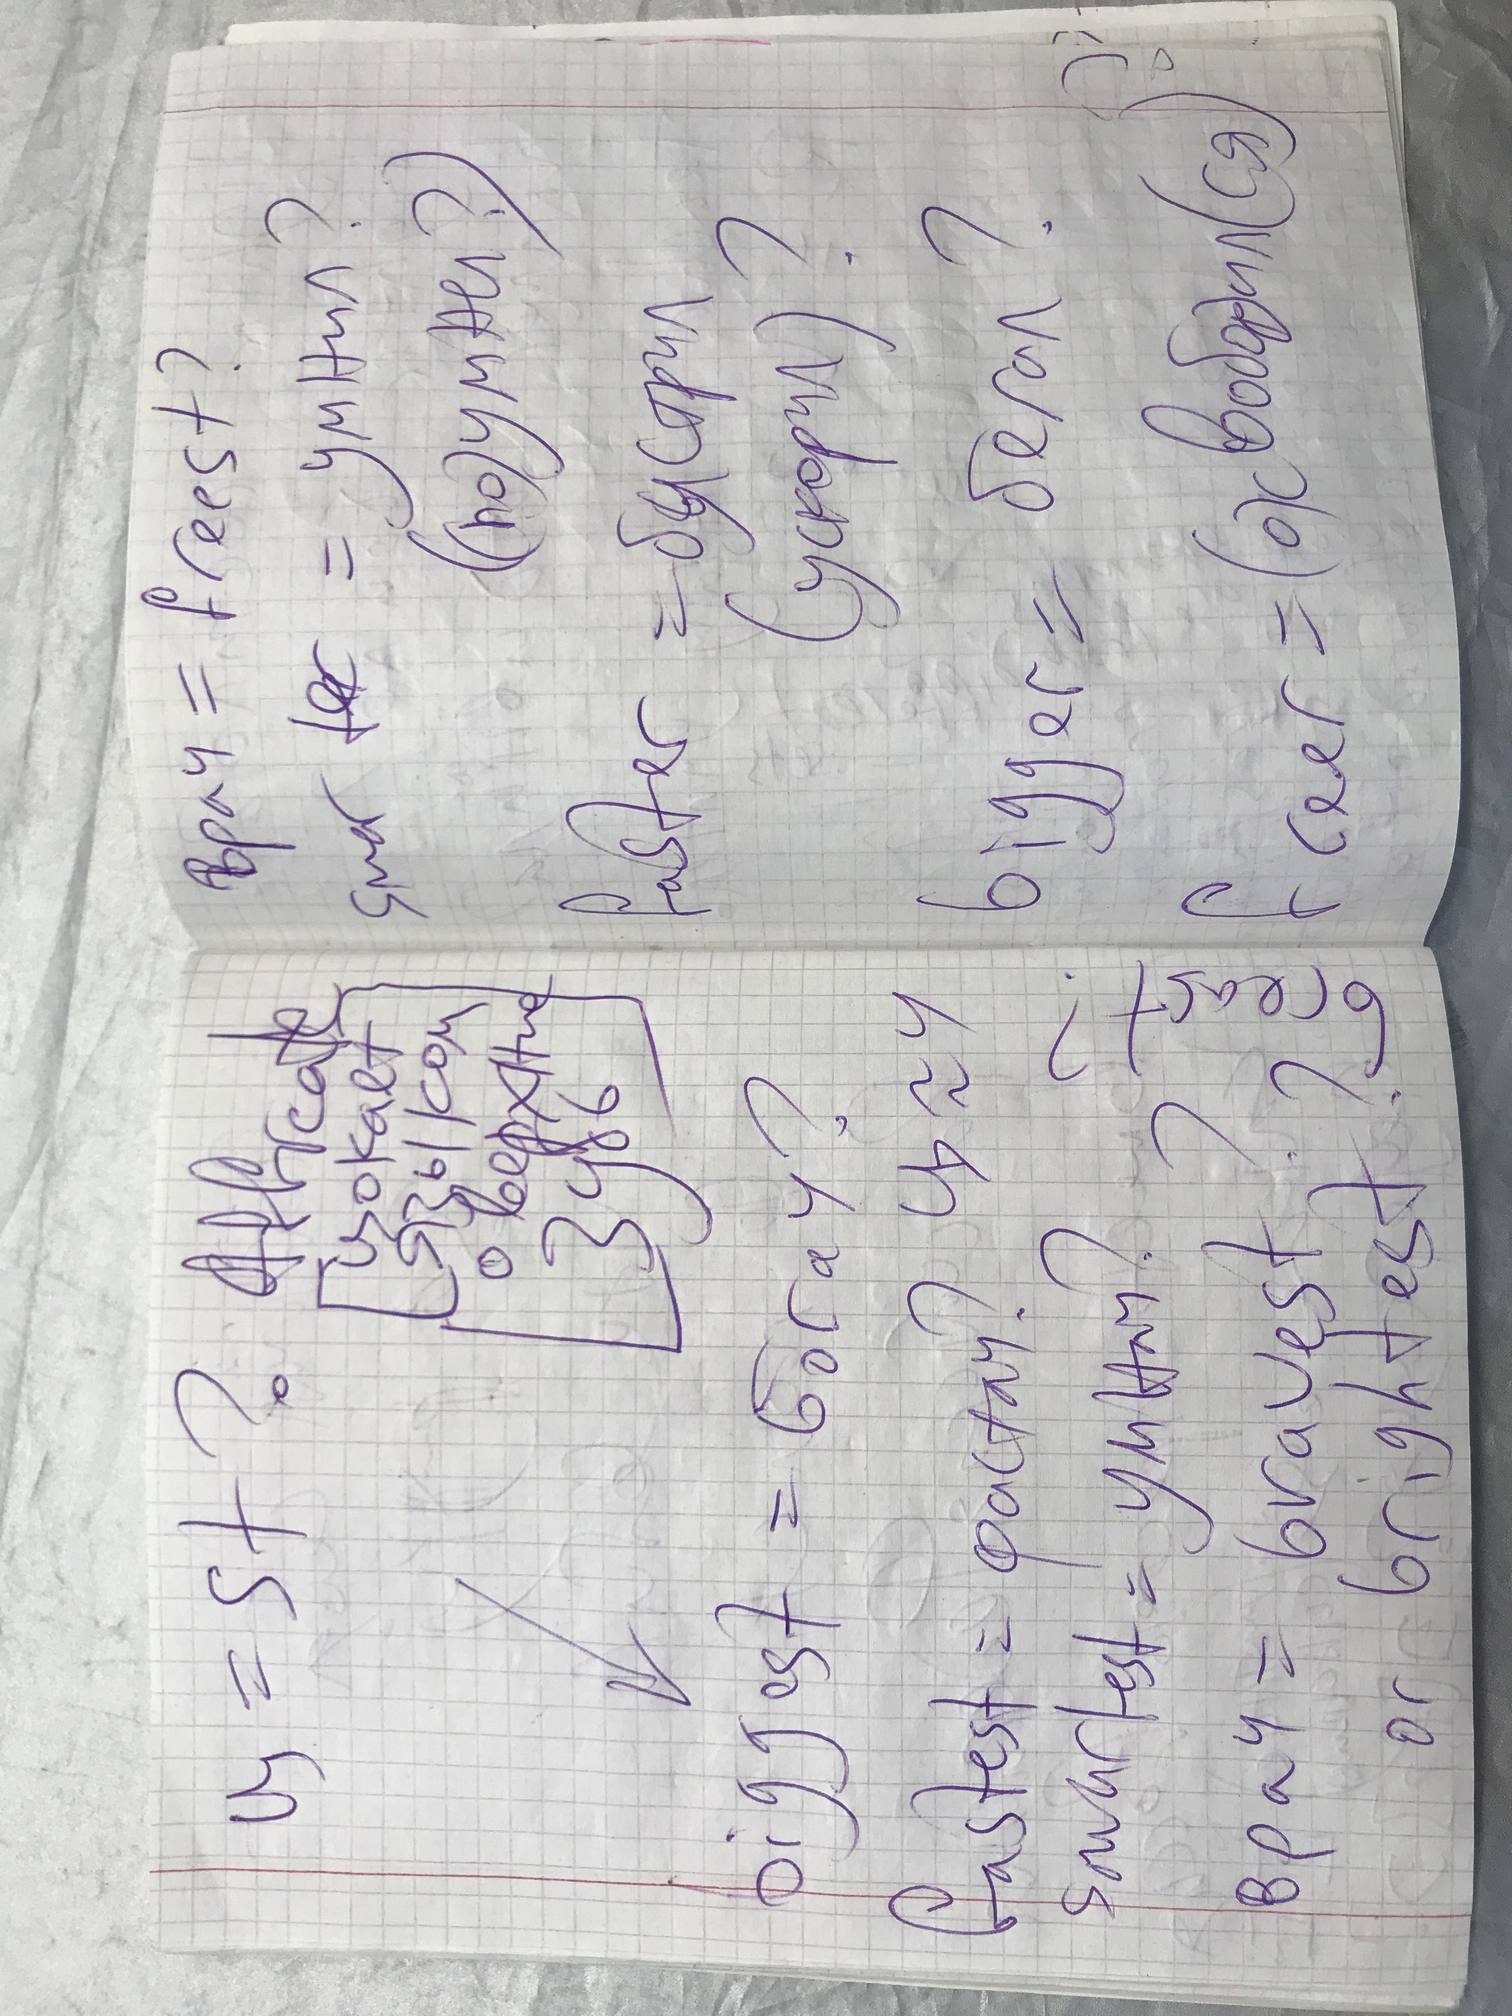 ц = st?
Affricate
цокает
языком
о верхние
зубы
biggest = богач?
fastest = фастач? ц ≈ ч
smartest = умнач?
врач = bravest?
or brightest?
or
great?
врач = freest?
smarter = умнил?
(по)умнел?)
faster = быстрил
(ускорил)?
bigger = бегал?
freer = (ос)вободил(ся)?